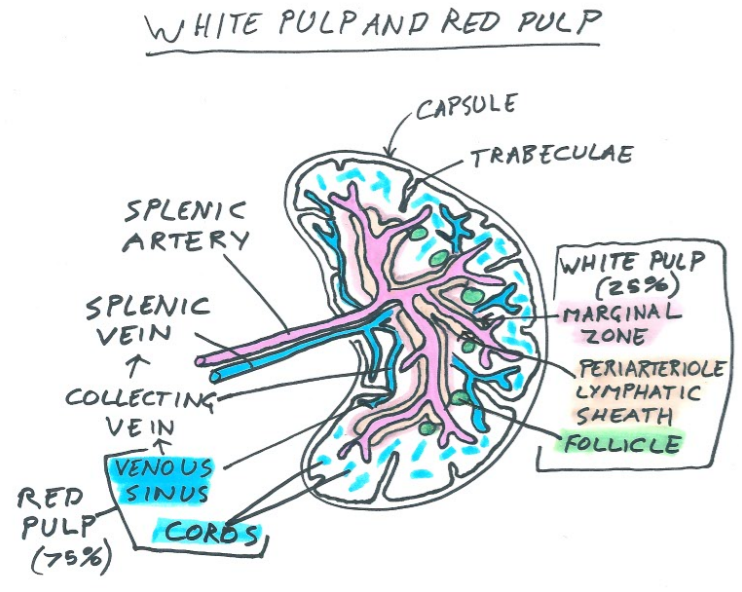 WHITE PULP AND RED PULP
CAPSULE
TRABECULAE
SPLENIC
ARTERY
SPLENIC
VEIN
COLLECTING
VEIN
VENOUS
SINUS
CORDS
RED
PULP
(75%)
WHITE PULP
(25%)
MARGINAL
ZONE
PERIARTERIOLE
LYMPHATIC
SHEATH
FOLLICLE